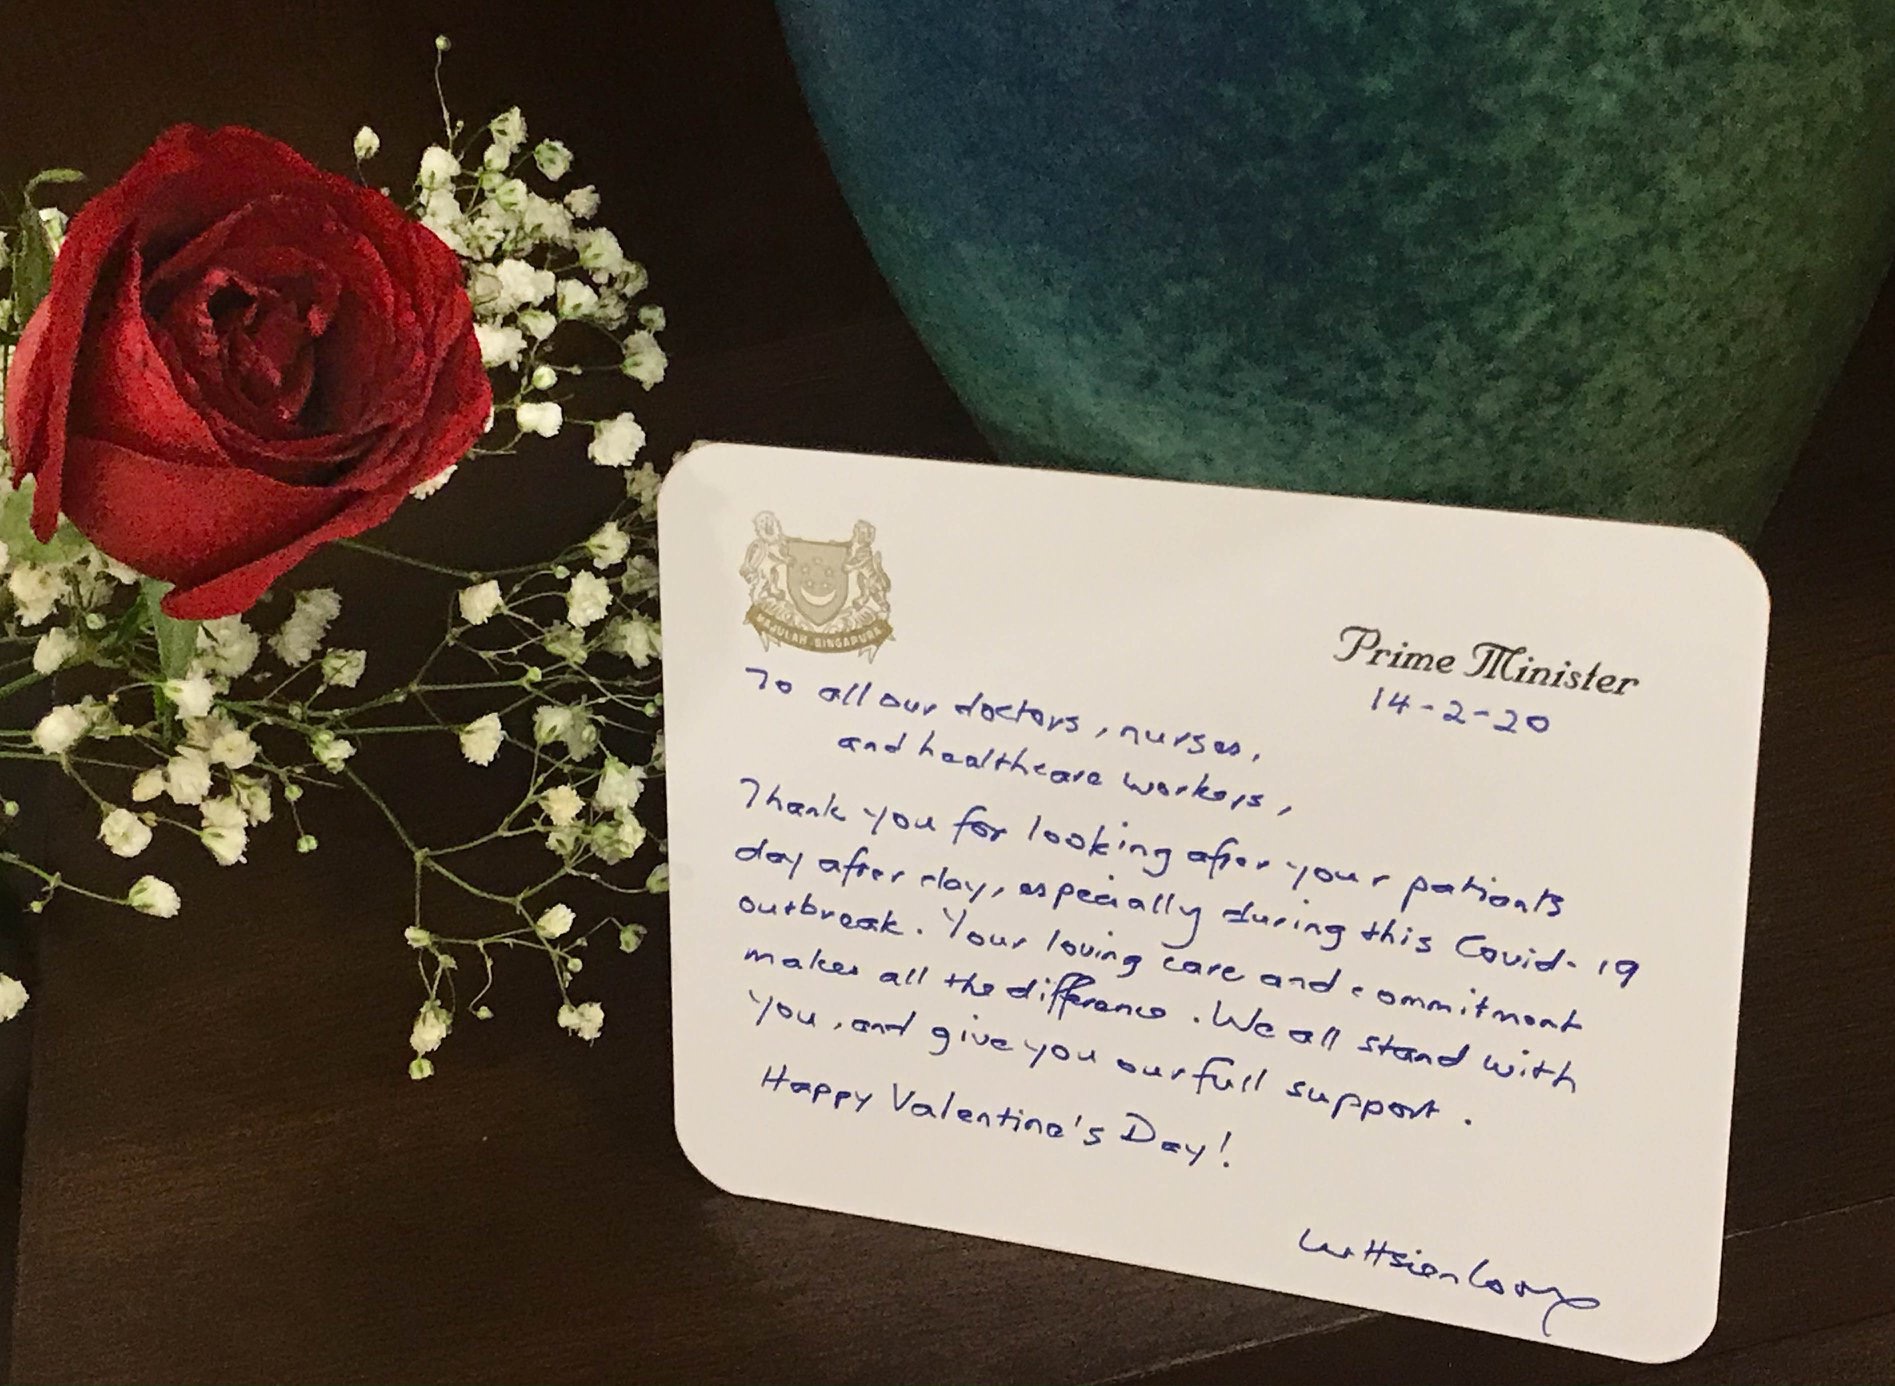 MAJULAH SINGAPURA
Prime Minister
14-2-20
To all our doctors, nurses,
and healthcare workers,
Thank you for looking after your patients
day after day, especially during this Covid-19
outbreak. Your loving care and commitment
makes all the difference. We all stand with
you, and give you our full support.
Happy Valentine's Day!
Lee Hsien Loong